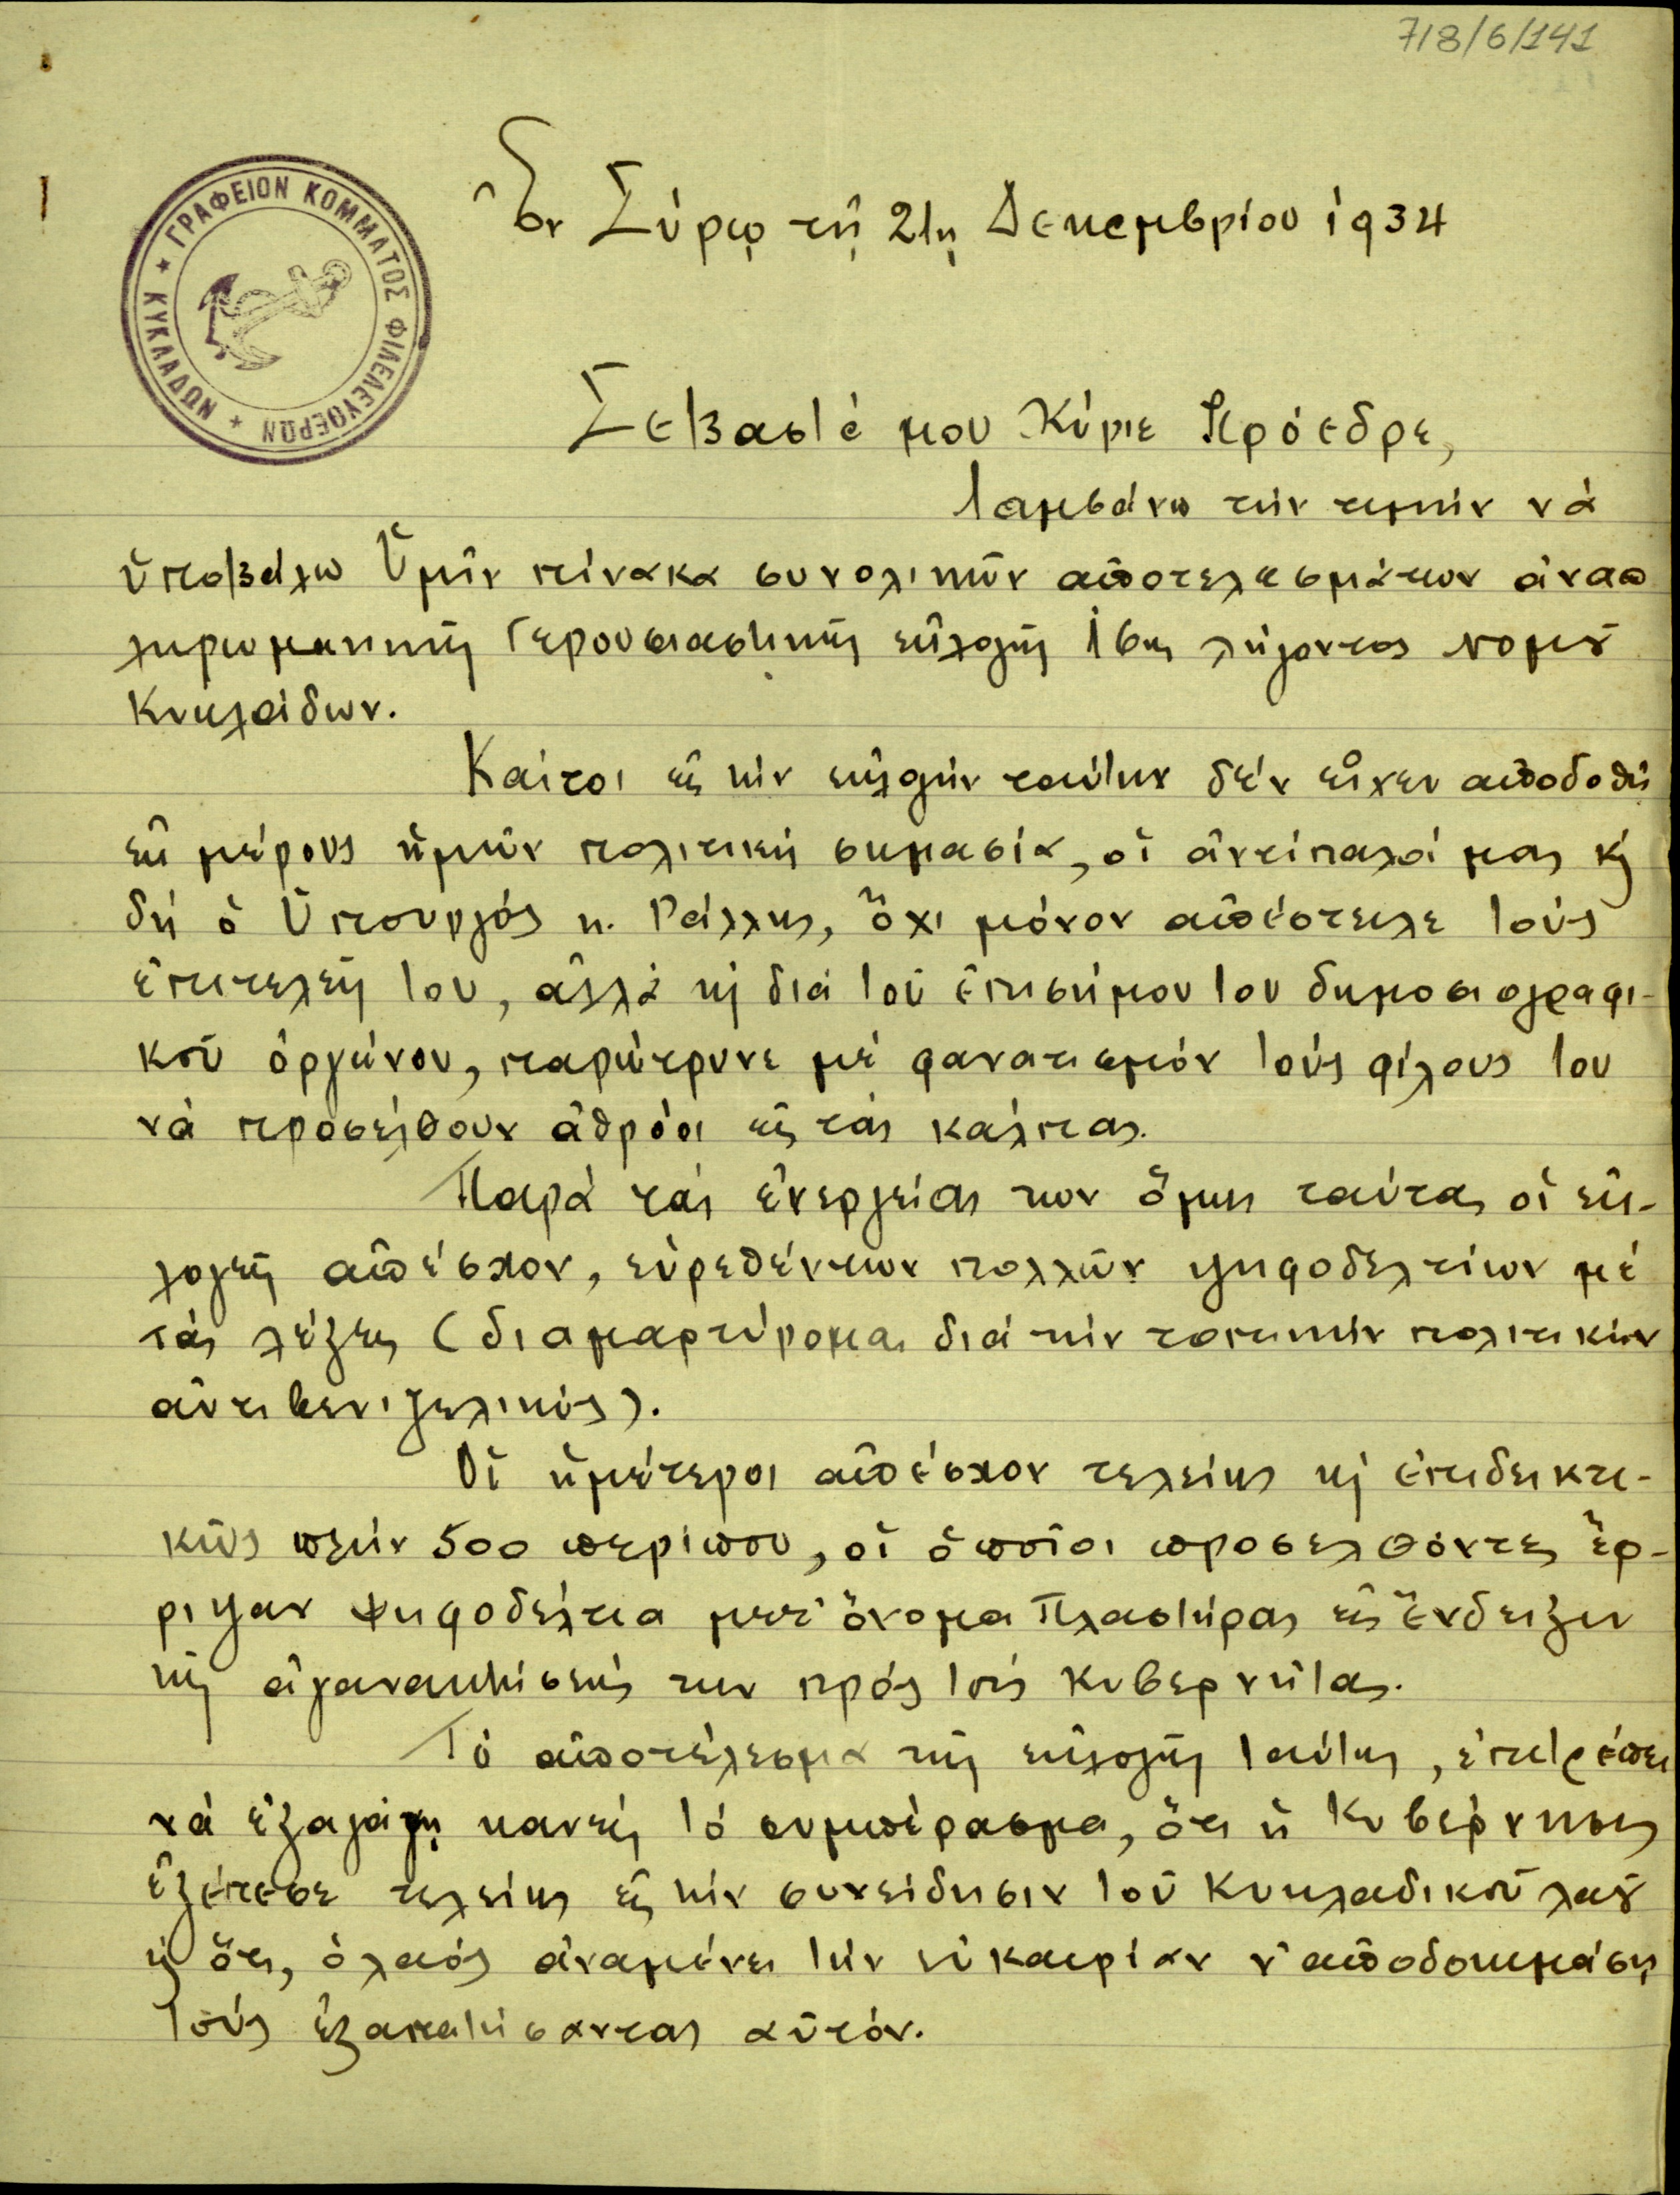 718/6/141
ΓΡΑΦΕΙΟΝ ΚΟΜΜΑΤΟΣ ΦΙΛΕΛΕΥΘΕΡΩΝ * ΚΥΚΛΑΔΩΝ *
Ἐν Σύρῳ τῇ 21ῃ Δεκεμβρίου 1934
Σεβαστέ μου Κύριε Πρόεδρε,
Λαμβάνω τὴν τιμὴν νὰ
ὑποβάλω Ὑμῖν πίνακα συνολικῶν ἀποτελεσμάτων ἀναπ
ληρωματικῆς Γερουσιαστικῆς ἐκλογῆς 16ης λήγοντος νομοῦ
Κυκλάδων.
Καίτοι εἰς τὴν ἐκλογὴν ταύτην δὲν εἶχεν ἀποδοθῆ
ἐκ μέρους ἡμῶν πολιτικὴ σημασία, οἱ ἀντίπαλοί μας κ
δὴ ὁ Ὑπουργὸς κ. Ράλλης, ὄχι μόνον ἀπέστειλε τοὺς
ἐπιτελεῖς του, ἀλλὰ κ διὰ τοῦ ἐπισήμου του δημοσιογραφι-
κοῦ ὀργάνου, παρώτρυνε μὲ φανατισμὸν τοὺς φίλους του
νὰ προσέλθουν ἀθρόοι εἰς τὰς κάλπας.
Παρὰ τὰς ἐνεργείας των ὅμως ταύτας οἱ ἐκ-
λογεῖς ἀπέσχον, εὑρεθέντων πολλῶν ψηφοδελτίων μὲ
τὰς λέξεις (διαμαρτύρομαι διὰ τὴν τοπικὴν πολιτικὴν
ἀντιβενιζελικός).
Οἱ ἡμέτεροι ἀπέσχον τελείως κ ἐπιδεικτι-
κῶς πλὴν 500 περίπου, οἱ ὁποῖοι προσελθόντες ἔρ-
ριψαν ψηφοδέλτια μετ' ὄνομα Πλαστήρας εἰς ἔνδειξιν
τῆς ἀγανακτήσεώς των πρὸς τοὺς Κυβερνήτας.
Τὸ ἀποτέλεσμα τῆς ἐκλογῆς ταύτης, ἐπιτρέπει
νὰ ἐξαγάγῃ κανεὶς τὸ συμπέρασμα, ὅτι ἡ Κυβέρνησις
ἐξέπεσε τελείως εἰς τὴν συνείδησιν τοῦ Κυκλαδικοῦ λαοῦ
κ ὅτι, ὁ λαὸς ἀναμένει τὴν εὐκαιρίαν ν' ἀποδοκιμάσῃ
τοὺς ἐξαπατήσαντας αὐτόν.